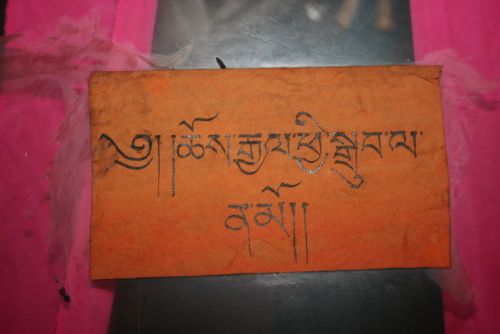 ༄། །ཆོས་རྒྱལ་ཕྱི་སྒྲུབ་ལ་
ན་མོ།།